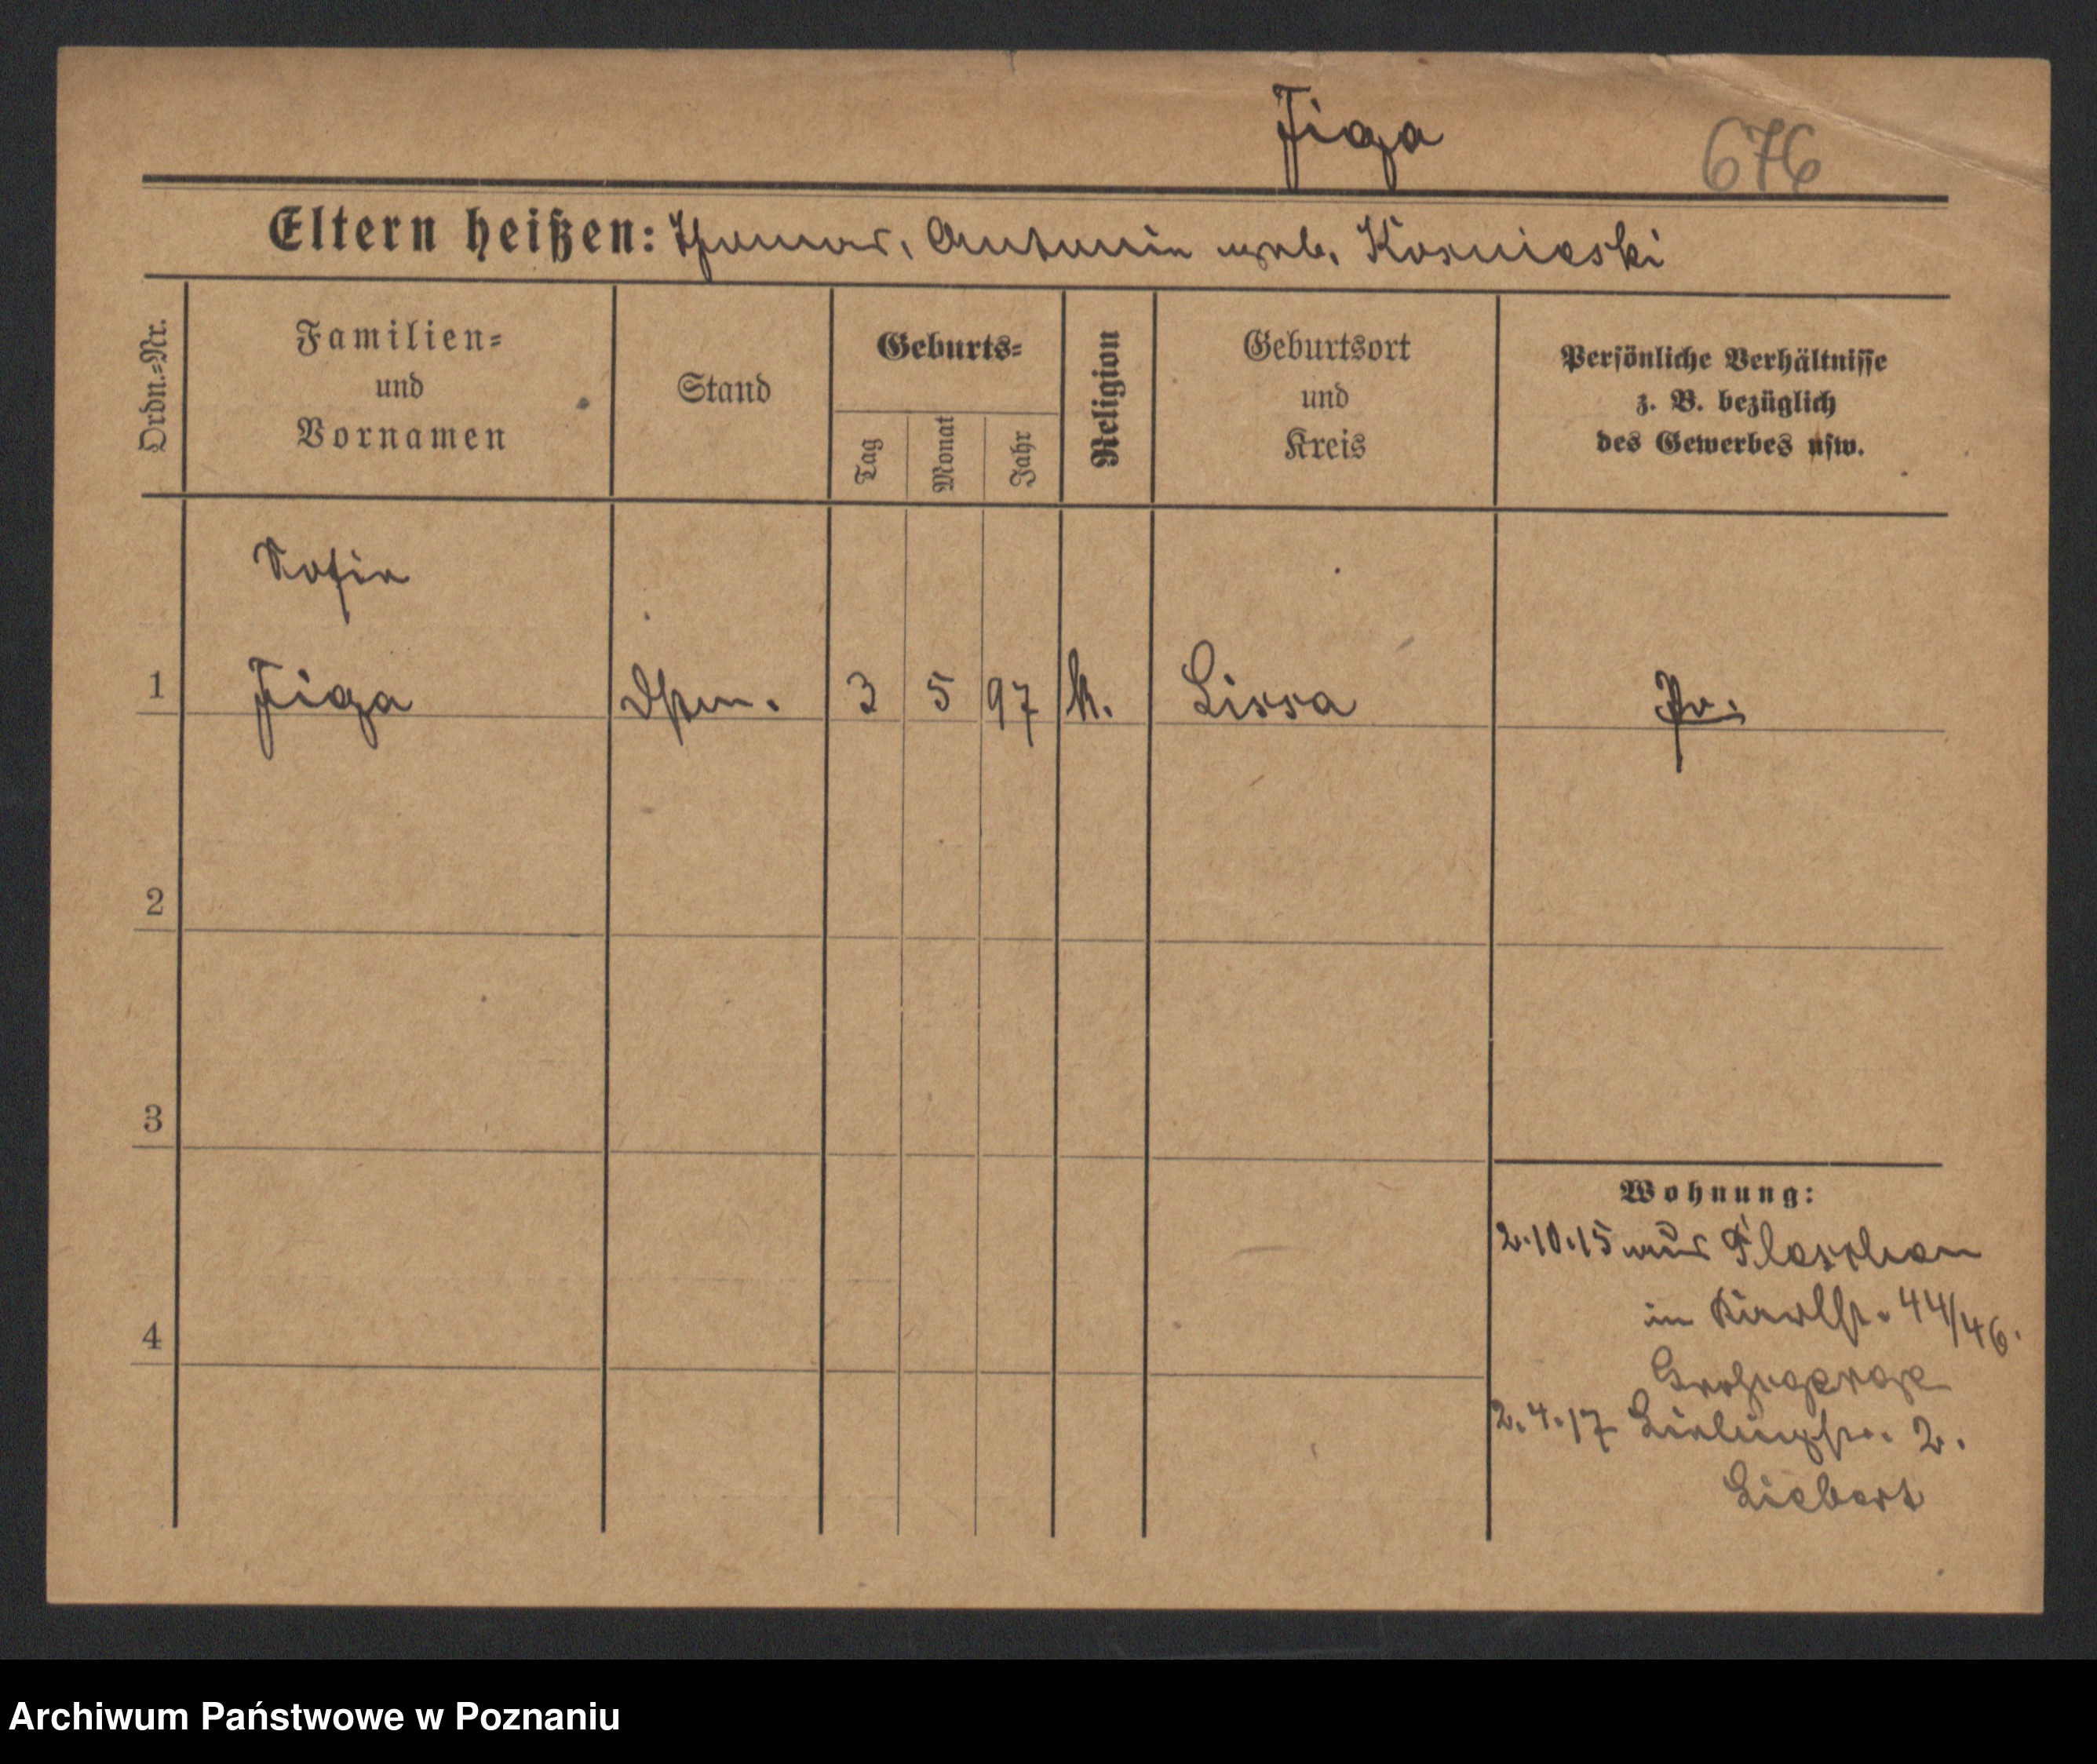 Figa
676
Eltern heißen: Thomas, Antonie geb. Kosnieski
Ordn.=Nr.
Familien=
und
Vornamen
Stand
Geburts=
Tag
Monat
Jahr
Religion
Geburtsort
und
Kreis
Persönliche Verhältnisse
z. B. bezüglich
des Gewerbes usw.
Sofie
1 Figa 3 5 97 k. Lissa Pr.
2
3
4
Wohnung:
2.10.15 aus
in 44/46.
2.4.17 2.
Liebert
Archiwum Państwowe w Poznaniu